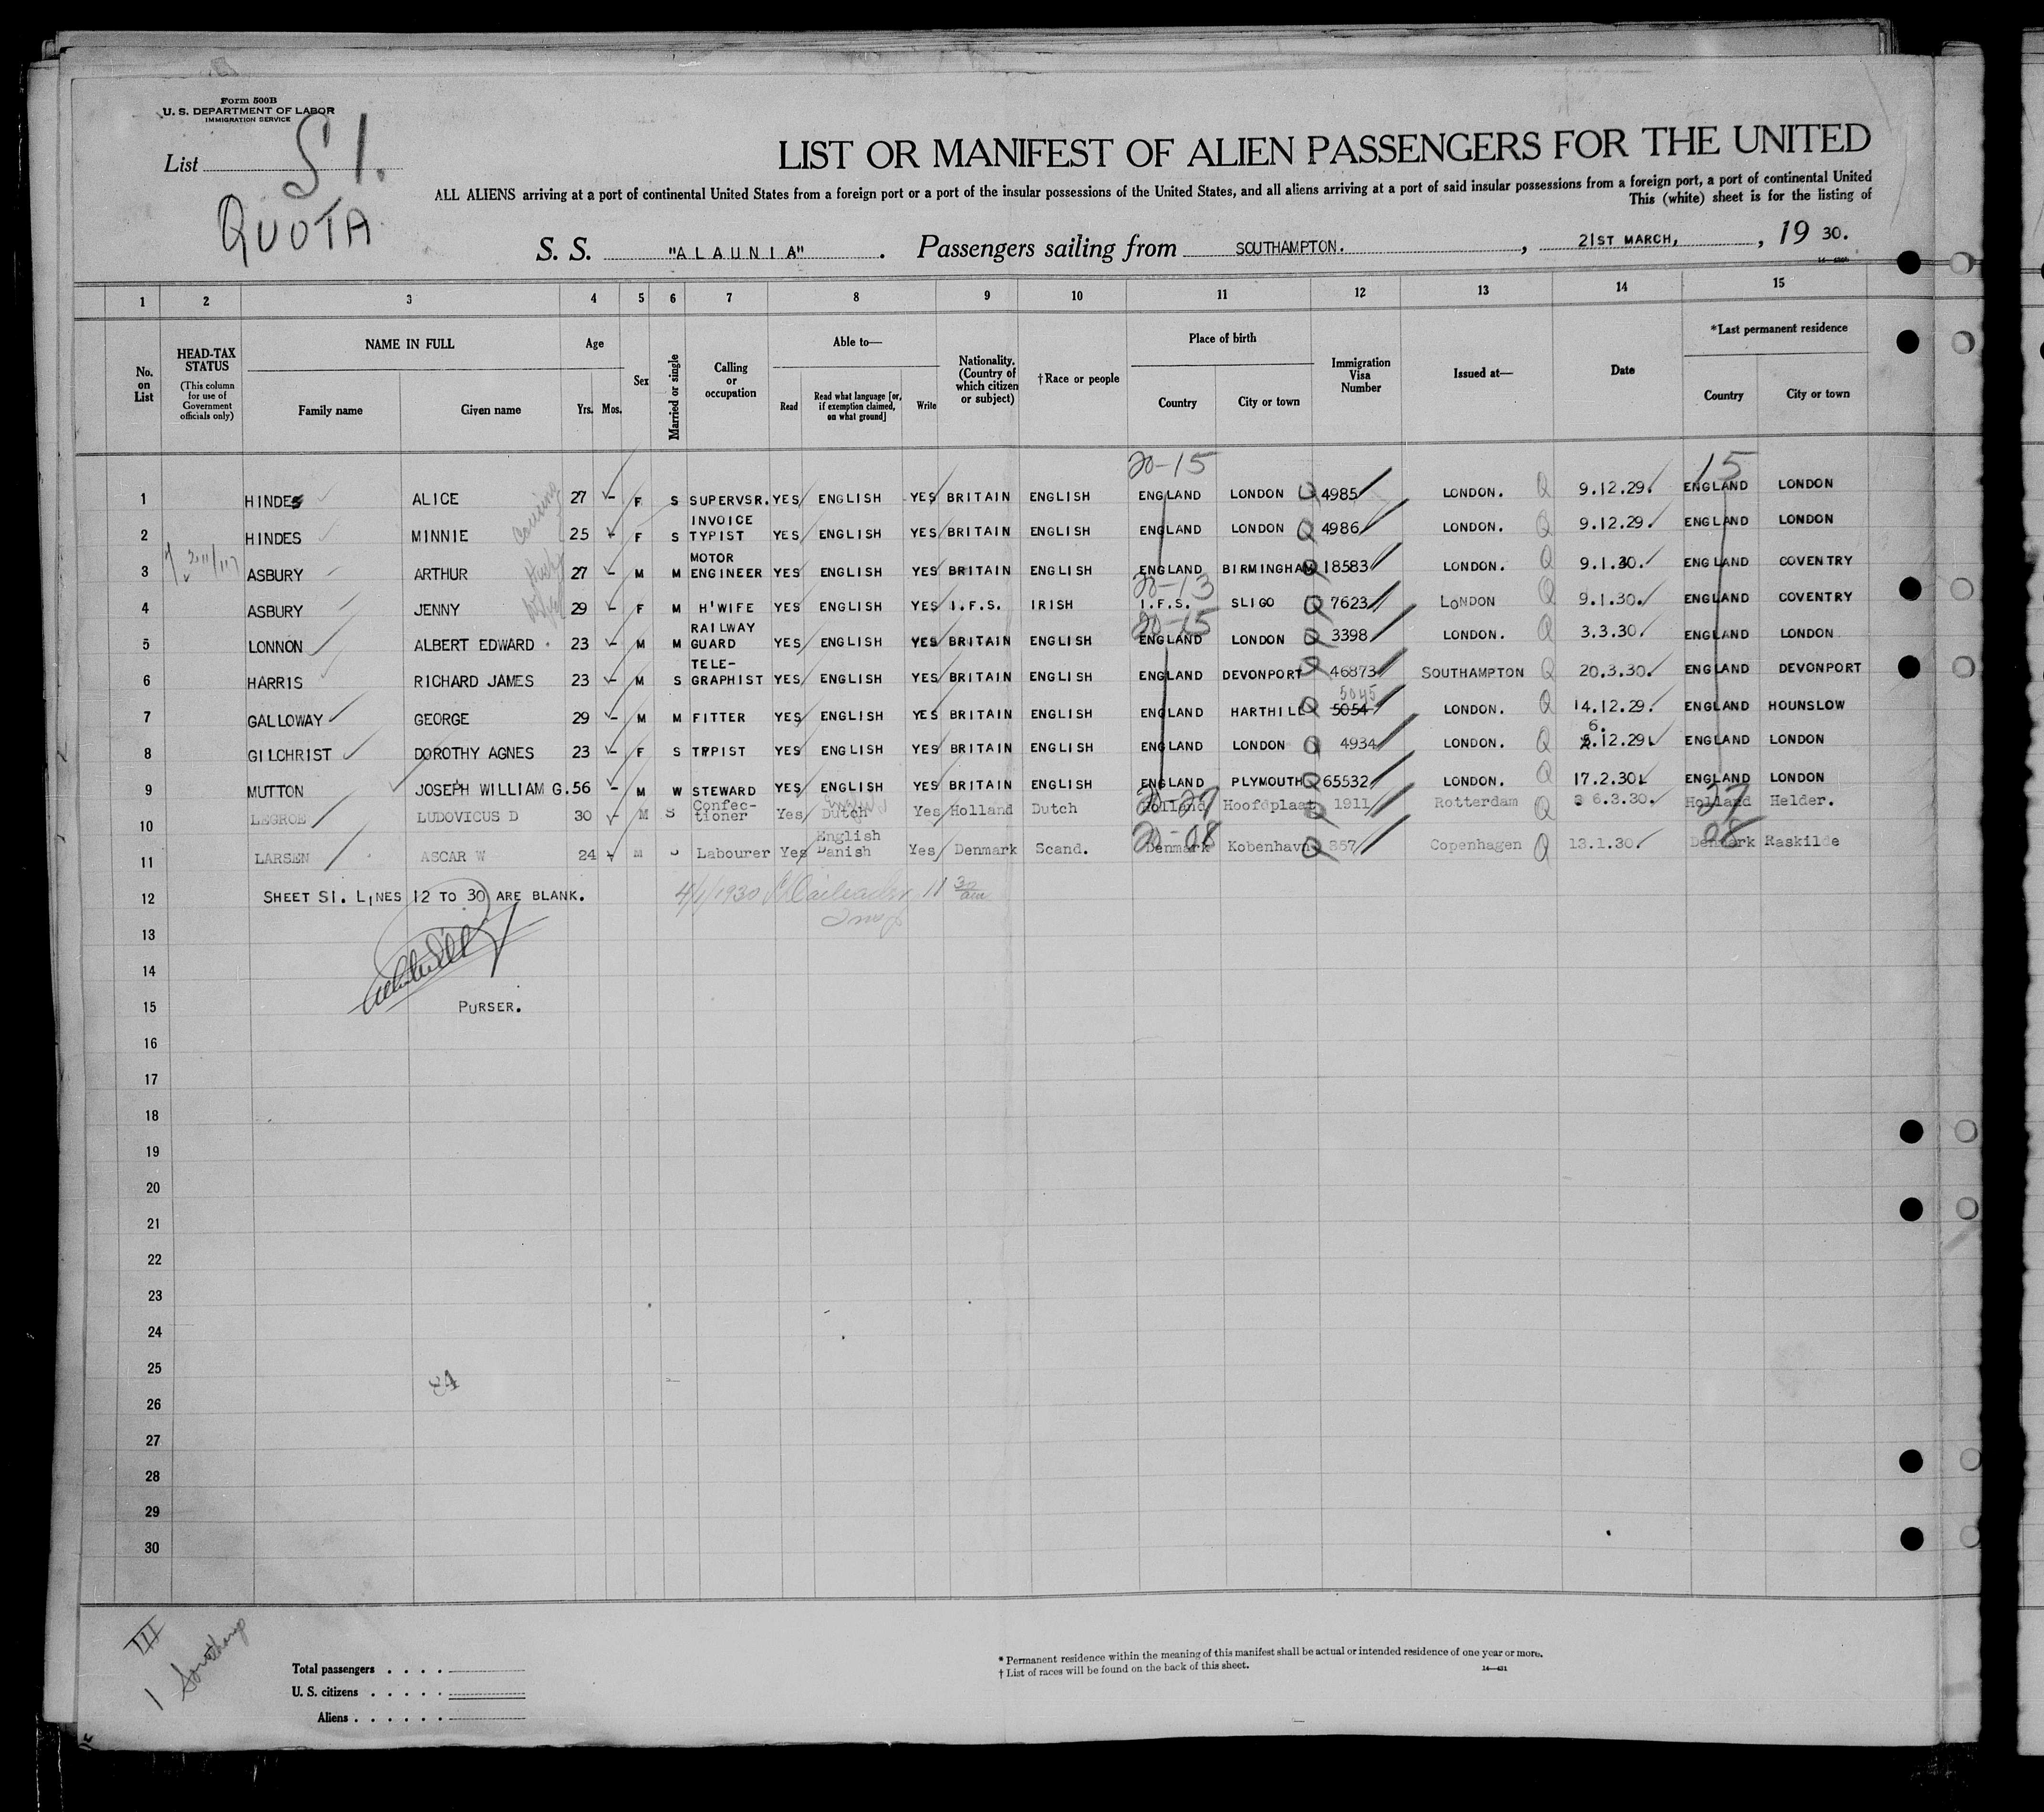 Form 500B
U. S. DEPARTMENT OF LABOR
IMMIGRATION SERVICE
List S1.
QUOTA
LIST OR MANIFEST OF ALIEN PASSENGERS FOR THE UNITED
ALL ALIENS arriving at a port of continental United States from a foreign port or a port of the insular possessions of the United States, and all aliens arriving at a port of said insular possessions from a foreign port, a port of continental United
This (white) sheet is for the listing of
S. S. "ALAUNIA". Passengers sailing from SOUTHAMPTON., 21ST MARCH, , 19 30.
1 2 3 4 5 6 7 8 9 10 11 12 13 14 15
No. on List
HEAD-TAX STATUS (This column for use of Government officials only)
NAME IN FULL Family name Given name
Age Yrs. Mos.
Sex
Married or single
Calling or occupation
Able to— Read Read what language [or, if exemption claimed, on what ground] Write
Nationality. (Country of which citizen or subject)
†Race or people
Place of birth Country City or town
Immigration Visa Number
Issued at—
Date
*Last permanent residence Country City or town
20-15 15
1 HINDES ALICE 27 - F S SUPERVSR. YES ENGLISH YES BRITAIN ENGLISH ENGLAND LONDON Q 4985 LONDON. Q 9.12.29. ENGLAND LONDON
2 HINDES MINNIE 25 - F S INVOICE TYPIST YES ENGLISH YES BRITAIN ENGLISH ENGLAND LONDON Q 4986 LONDON. Q 9.12.29. ENGLAND LONDON
3 ASBURY ARTHUR 27 - M M MOTOR ENGINEER YES ENGLISH YES BRITAIN ENGLISH ENGLAND BIRMINGHAM Q 18583 LONDON. Q 9.1.30. ENGLAND COVENTRY
20-13
4 ASBURY JENNY 29 - F M H'WIFE YES ENGLISH YES I.F.S. IRISH I.F.S. SLIGO Q 7623 LONDON Q 9.1.30. ENGLAND COVENTRY
20-15
5 LONNON ALBERT EDWARD 23 - M M RAILWAY GUARD YES ENGLISH YES BRITAIN ENGLISH ENGLAND LONDON Q 3398 LONDON. Q 3.3.30. ENGLAND LONDON
6 HARRIS RICHARD JAMES 23 - M S TELE-GRAPHIST YES ENGLISH YES BRITAIN ENGLISH ENGLAND DEVONPORT Q 46873 SOUTHAMPTON Q 20.3.30. ENGLAND DEVONPORT
5045
7 GALLOWAY GEORGE 29 - M M FITTER YES ENGLISH YES BRITAIN ENGLISH ENGLAND HARTHILL Q 5054 LONDON. Q 14.12.29. ENGLAND HOUNSLOW
8 GILCHRIST DOROTHY AGNES 23 - F S TYPIST YES ENGLISH YES BRITAIN ENGLISH ENGLAND LONDON Q 4934 LONDON. Q 6.12.29 ENGLAND LONDON
9 MUTTON JOSEPH WILLIAM G. 56 - M W STEWARD YES ENGLISH YES BRITAIN ENGLISH ENGLAND PLYMOUTH Q 65532 LONDON. Q 17.2.30 ENGLAND LONDON
20-27 27
10 LEGROE LUDOVICUS D 30 - M S Confec-tioner Yes Dutch Yes Holland Dutch Holland Hoofdplaat Q 1911 Rotterdam Q 6.3.30. Holland Helder.
20-08 08
11 LARSEN ASCAR W 24 M S Labourer Yes English Danish Yes Denmark Scand. Denmark Kobenhavn Q 357 Copenhagen Q 13.1.30. Denmark Raskilde
12 SHEET S1. LINES 12 TO 30 ARE BLANK. 4/1/1930 11 30 am
13
14
15 PURSER.
16
17
18
19
20
21
22
23
24
25
26
27
28
29
30
III
1 Southamp
Total passengers
U. S. citizens
Aliens
* Permanent residence within the meaning of this manifest shall be actual or intended residence of one year or more.
† List of races will be found on the back of this sheet.